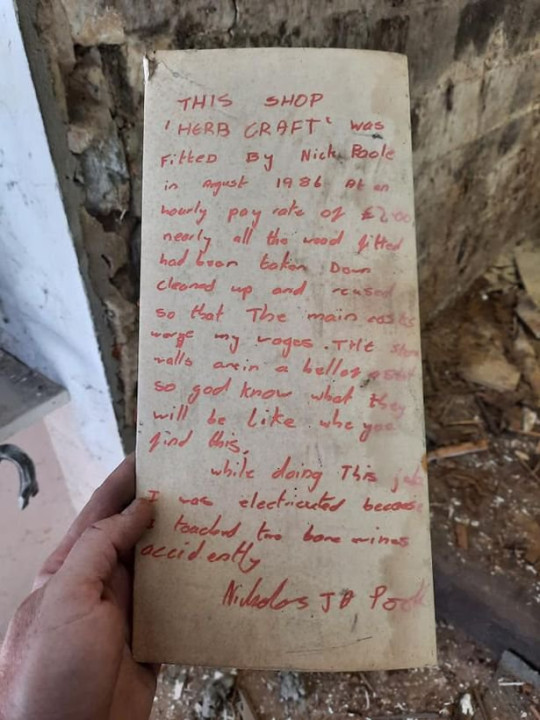 THIS SHOP
'HERB CRAFT' was
Fitted By Nick Poole
in August 1986 At an
hourly pay rate of £2.00
nearly all the wood fitted
had been taken Down
cleaned up and reused
so that The main costs
werge my wages. THE stone
walls are in a
so god know what they
will be like whe you
find this.
while doing This job
I was electricuted because
I touched two bare wires
accidently
Nicholas J Poole